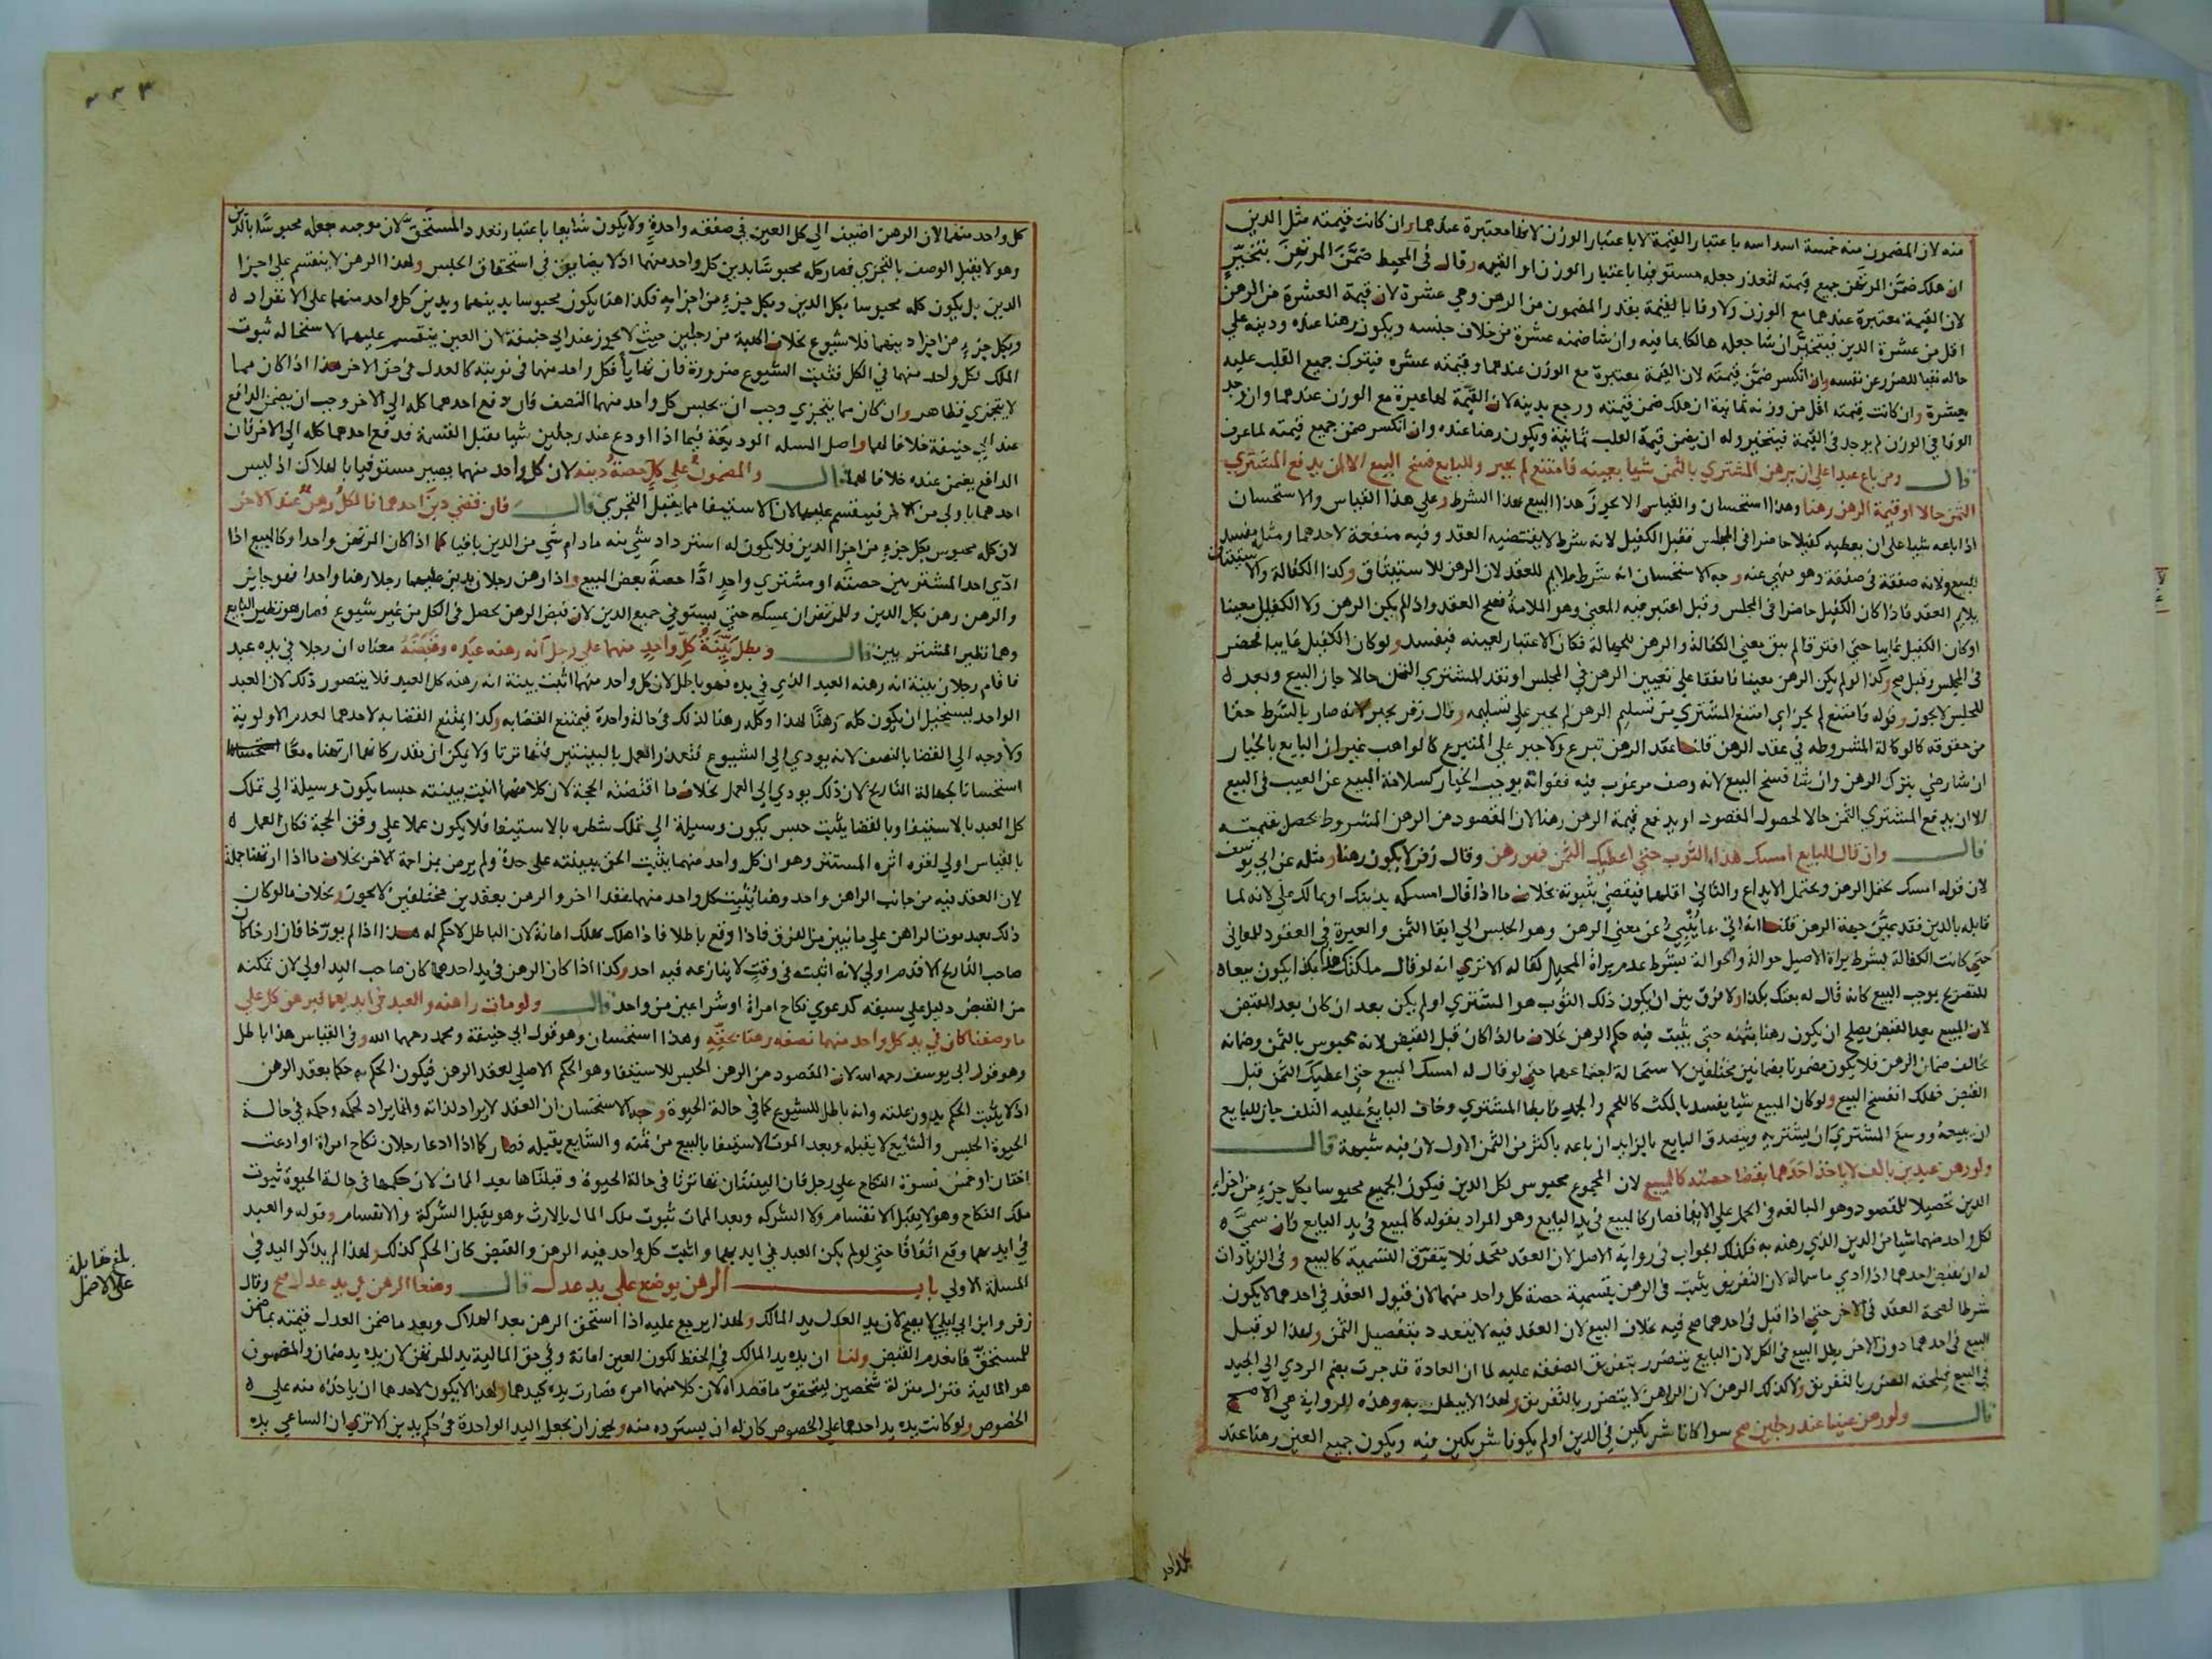 منه لان المضمون منه خمسة اسداسه باعتبار القيمة لا باعتبار الوزن لانها معتبرة عندهما وان كانت قيمته مثل الدين
ان هلك ضمن المرتهن جميع قيمته لتعذر جعله مستوفيا باعتبار الوزن او القيمه وقال في المحيط ضمن المرتهن بتخير
لان القيمة معتبرة عندهما مع الوزن ولا وفا بالقيمة بقدر المضمون من الرهن وهي عشرة لان قيمة العشرة من الرهن
اقل من عشرة الدين فيتخير ان شا جعله هالكا بما فيه وان شا ضمنه عشرة من خلاف جنسه ويكون رهنا عنده ودينه علي
حاله نفيا للضرر عن نفسه وان انكسر ضمن قيمته لان القيمة معتبرة مع الوزن عندهما وقيمته عشره فيترك جميع القلب عليه
بعشرة وان كانت قيمته اقل من وزنه ثمانية ان هلك ضمن قيمته ورجع بدينه لان القيمة لها عبرة مع الوزن عندهما وان وجد
الوفا في الوزن لم يوجد في القيمة فيتخير وله ان يضمن قيمة القلب ثمانية ويكون رهنا عنده وان انكسر ضمن جميع قيمته لما عرف
قال ومن باع عبدا علي ان يرهن المشتري بالثمن شيا بعينه فامتنع لم يجبر وللبايع فسخ البيع الا ان يدفع المشتري
الثمن حالا او قيمة الرهن رهنا وهذا استحسان والقياس الا يجوز هذا البيع بهذا الشرط وعلي هذا القياس والاستحسان
اذا باعه شيا علي ان يعطيه كفيلا حاضرا في المجلس فقبل الكفيل لانه شرط لا يقتضيه العقد وفيه منفعة لاحدهما ومثله يفسد
البيع ولانه صفقة في صفقة وهو منهي عنه وجه الاستحسان انه شرط ملايم للعقد لان الرهن للاستيثاق وكذا الكفالة والاستيثاق
يلايم العقد فاذا كان الكفيل حاضرا في المجلس وقبل اعتبر فيه المعني وهو الملامة فصح العقد واذا لم يكن الرهن ولا الكفيل معينا
او كان الكفيل غايبا حتي افترقا لم يبق معني الكفالة والرهن للجهالة فكان الاعتبار لعينه فيفسد ولو كان الكفيل غايبا فحضر
في المجلس وقبل صح وكذا لو لم يكن الرهن معينا فاتفقا علي تعيين الرهن في المجلس او نقد المشتري الثمن حالا جاز البيع وبعد
المجلس لا يجوز وقوله فامتنع لم يجبر اي امتنع المشتري من تسليم الرهن لم يجبر علي تسليمه وقال زفر يجبر لانه صار بالشرط حقا
من حقوقه كالوكالة المشروطه في عقد الرهن قلنا عقد الرهن تبرع ولا جبر علي المتبرع كالواهب غير ان البايع بالخيار
ان شا رضي بترك الرهن وان شا فسخ البيع لانه وصف مرغوب فيه ففواته يوجب الخيار كسلامة المبيع عن العيب في البيع
الا ان يدفع المشتري الثمن حالا لحصول المقصود او يدفع قيمة الرهن رهنا لان المقصود من الرهن المشروط يحصل بقيمته
قال وان قال للبايع امسك هذا الثوب حتي اعطيك الثمن فهو رهن وقال زفر لا يكون رهنا ومثله عن ابي يوسف
لان قوله امسك يحتمل الرهن ويحتمل الايداع والثاني اقلهما فيقضي بثبوته بخلاف ما اذا قال امسكه بدينك او بمالك علي لانه لما
قابله بالدين فقد عين جهة الرهن قلنا انه اتي بما ينبي عن معني الرهن وهو الحبس الي ايفا الثمن والعبرة في العقود للمعاني
حتي كانت الكفالة بشرط براة الاصيل حوالة والحوالة بشرط عدم براة المحيل كفاله الا تري انه لو قال ملكتك هذا بكذا يكون بيعا
للتصريح بموجب البيع كانه قال له بعتك بكذا ولا فرق بين ان يكون ذلك الثوب هو المشتري او لم يكن بعد ان كان بعد القبض
لان المبيع بعد القبض يصلح ان يكون رهنا بثمنه حتي يثبت فيه حكم الرهن بخلاف ما اذا كان قبل القبض لانه محبوس بالثمن وضمانه
يخالف ضمان الرهن فلا يكون مضمونا بضمانين مختلفين لاستحالة اجتماعهما حتي لو قال له امسك المبيع حتي اعطيك الثمن قبل
القبض فهلك انفسخ البيع ولو كان المبيع شيا يفسد بالمكث كاللحم والجمد فابطا المشتري وخاف البايع عليه التلف جاز للبايع
ان يبيعه ووسع المشتري ان يشتريه ويتصدق البايع بالزايد ان باعه باكثر من الثمن الاول لان فيه شبهة قال
ولو رهن عبدين بالف لا ياخذ احدهما بقضا حصته كالمبيع لان المجموع محبوس لكل الدين فيكون الجميع محبوسا بكل جزء من اجزاء
الدين تحصيلا للمقصود وهو المبالغه في الحمل علي الايفا فصار كالمبيع في يد البايع وهو المراد بقوله كالمبيع في يد البايع فان سمي
لكل واحد منهما شيا من الدين الذي رهنه به فكذلك الجواب في رواية الاصل لان العقد متحد فلا يتفرق التسمية كالبيع وفي الزيادات
له ان يقبض احدهما اذا ادي ما سما له لان التفريق يثبت في الرهن بتسمية حصة كل واحد منهما لان قبول العقد في احدهما لا يكون
شرطا لصحة العقد في الاخر حتي اذا قبل في احدهما صح فيه بخلاف البيع لان العقد فيه لا يتعدد بتفصيل الثمن ولهذا لو قبل
البيع في احدهما دون الاخر بطل البيع في الكل لان البايع يتضرر بتفريق الصفقة عليه لما ان العادة قد جرت بضم الردي الي الجيد
في البيع فيلحقه الضرر بالتفريق ولا كذلك الرهن لان الراهن لا يتضرر بالتفريق ولهذا لا يبطل به وهذه الرواية هي الاصح
قال ولو رهن عينا عند رجلين صح سوا كانا شريكين في الدين او لم يكونا شريكين فيه ويكون جميع العين رهنا عند
كل واحد
كل واحد منهما لان الرهن اضيف الي كل العين في صفقه واحدة ولا يكون شايعا باعتبار تعدد المستحق لان موجبه جعله محبوسا بالدين
وهو لا يقبل الوصف بالتجزي فصار كله محبوسا بدين كل واحد منهما اذ لا تضايق في استحقاق الحبس ولهذا الرهن لا ينقسم علي اجزا
الدين بل يكون كله محبوسا بكل الدين وبكل جزء من اجزايه فكذا هنا يكون محبوسا بدينهما وبدين كل واحد منهما علي الانفراد
وبكل جزء من اجزا دينهما فلا شيوع بخلاف الهبة من رجلين حيث لا يجوز عند ابي حنيفة لان العين ينقسم عليهما لاستحاله ثبوت
الملك لكل واحد منهما في الكل فثبت الشيوع ضرورة فان تهاياا فكل واحد منهما في نوبته كالعدل في حق الاخر هذا اذا كان مما
لا يتجزي فظاهر وان كان مما يتجزي وجب ان يحبس كل واحد منهما النصف فان دفع احدهما كله الي الاخر وجب ان يضمن الدافع
عند ابي حنيفة خلافا لهما واصل المسله الوديعة فيما اذا اودع عند رجلين شيا يقبل القسمة فدفع احدهما كله الي الاخر فان
الدافع يضمن عنده خلافا لهما قال والمضمون علي كل حصة دينه لان كل واحد منهما يصير مستوفيا بالهلاك اذ ليس
احدهما باولي من الاخر فينقسم عليهما لان الاستيفا مما يقبل التجزي قال فان قضي دين احدهما فالكل رهن عند الاخر
لان كله محبوس بكل جزء من اجزا الدين فلا يكون له استرداد شي منه ما دام شي من الدين باقيا كما اذا كان المرتهن واحدا وكالبيع اذا
ادي احد المشتريين حصته او مشتري واحد ادا حصة بعض المبيع واذا رهن رجلان بدين عليهما رجلا رهنا واحدا فهو جايز
والرهن رهن بكل الدين وللمرتهن ان يمسكه حتي يستوفي جميع الدين لان قبض الرهن يحصل في الكل من غير شيوع فصار هو نظير البايع
وهما نظير المشتريين قال وبطل بينة كل واحد منهما علي رجل انه رهنه عبده وقبضه معناه ان رجلا في يده عبد
فاقام رجلان بينة انه رهنه العبد الذي في يده فهو باطل لان كل واحد منهما اثبت ببينة انه رهنه كل العبد فلا يتصور ذلك لان العبد
الواحد يستحيل ان يكون كله رهنا لهذا وكله رهنا لذلك في حالة واحدة فيمتنع القضا به وكذا يمتنع القضا به لاحدهما لعدم الاولوية
ولا وجه الي القضا بالنصف لانه يودي الي الشيوع فتعذر العمل بالبينتين فتهاترتا ولا يمكن ان يقدر كانهما ارتهنا معا
استحسانا لجهالة التاريخ لان ذلك يودي الي العمل بخلاف ما اقتضته الحجة لان كلا منهما اثبت ببينته حبسا يكون وسيلة الي تملك
كل العبد بالاستيفا وبالقضا يثبت حبس يكون وسيلة الي تملك شطره بالاستيفا فلا يكون عملا علي وفق الحجة فكان العمل
بالقياس اولي لقوه اثره المستتر وهو ان كل واحد منهما يثبت الحق ببينته علي حدة ولم يرض بمزاحمة الاخر بخلاف ما اذا ارتهنا جملة
لان العقد فيه من جانب الراهن واحد وهنا يثبت كل واحد منهما عقدا اخر والرهن بعقدين مختلفين لا يجوز وبخلاف ما لو كان
ذلك بعد موت الراهن علي ما نبين من الفرق فاذا وقع باطلا فاذا هلك يهلك امانة لان الباطل لا حكم له هذا اذا لم يورخا فان ارخا كان
صاحب التاريخ الاقدم اولي لانه اثبته في وقت لا ينازعه فيه احد وكذا اذا كان الرهن في يد احدهما كان صاحب اليد اولي لان تمكنه
من القبض دليل علي سبقه كدعوي نكاح امراة او شرا عين من واحد قال ولو مات راهنه والعبد في ايديهما فبرهن كل علي
ما وصفنا كان في يد كل واحد منهما نصفه رهنا بحقه وهذا استحسان وهو قول ابي حنيفة ومحمد رحمهما الله وفي القياس هذا باطل
وهو قول ابي يوسف رحمه الله لان المقصود من الرهن الحبس للاستيفا وهو الحكم الاصلي لعقد الرهن فيكون الحكم به حكما بعقد الرهن
اذ لا يثبت الحكم بدون علته وانه باطل للشيوع كما في حالة الحيوة وجه الاستحسان ان العقد لا يراد لذاته وانما يراد لحكمه وحكمه في حالة
الحيوة الحبس والشايع لا يقبله وبعد الموت الاستيفا بالبيع من ثمنه والشايع يقبله فصار كما اذا ادعا رجلان نكاح امراة او ادعت
اختان او خمس نسوة النكاح علي رجل فان البينتان تهاترتا في حالة الحيوة وقبلناها بعد الممات لان حكمها في حالة الحيوة ثبوت
ملك النكاح وهو لا يقبل الانقسام ولا الشركه وبعد الممات ثبوت ملك المال بالارث وهو يقبل الشركة والانقسام وقوله والعبد
في ايديهما وقع اتفاقا حتي لو لم يكن العبد في ايديهما واثبت كل واحد فيه الرهن والقبض كان الحكم كذلك ولهذا لم يذكر اليد في
المسلة الاولي باب الرهن يوضع علي يد عدل قال وضعا الرهن في يد عدل صح وقال
زفر وابن ابي ليلي لا يصح لان يد العدل يد المالك ولهذا يرجع عليه اذا استحق الرهن بعد الهلاك وبعد ما ضمن العدل قيمته بما ضمن
للمستحق فانعدم القبض ولنا ان يده يد المالك في الحفظ لكون العين امانة وفي حق المالية يد المرتهن لان يده يد ضمان والمضمون
هو المالية فتنزل منزلة شخصين ليتحقق ما قصداه لان كلا منهما امره فصارت يده كيدهما ولهذا لا يكون لاحدهما ان ياخذه منه علي
الخصوص ولو كانت يده يد احدهما علي الخصوص كان له ان يسترده منه ويجوز ان يجعل اليد الواحدة في حكم يدين الا تري ان الساعي يده
بلغ مقابلة
علي الاصل
٣٣٣